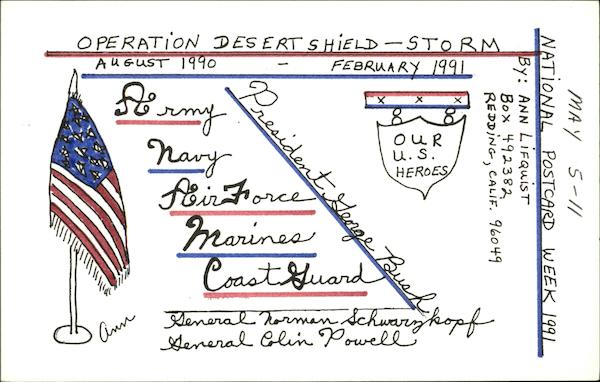 OPERATION DESERT SHIELD — STORM
AUGUST 1990 - FEBRUARY 1991
Army
Navy
Air Force
Marines
Coast Guard
President Geoge Bush
OUR
U.S.
HEROES
General Norman Schwarzkopf
General Colin Powell
Ann
MAY 5-11
NATIONAL POSTCARD WEEK 1991
BY: ANN LIFQUIST
BOX 492382
REDDING, CALIF. 96049